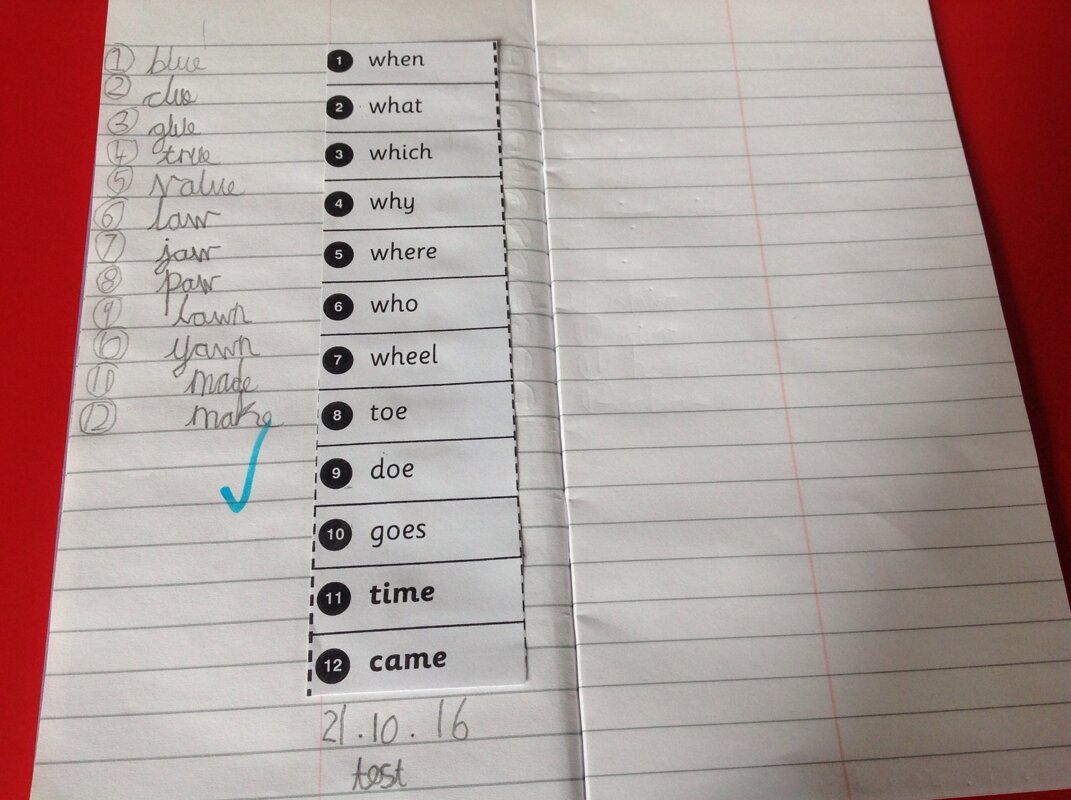 ① blue
② clue
③ glue
④ true
⑤ value
⑥ law
⑦ jaw
⑧ paw
⑨ lawn
⑩ yawn
⑪ made
⑫ make
1 when
2 what
3 which
4 why
5 where
6 who
7 wheel
8 toe
9 doe
10 goes
11 time
12 came
21.10.16
test